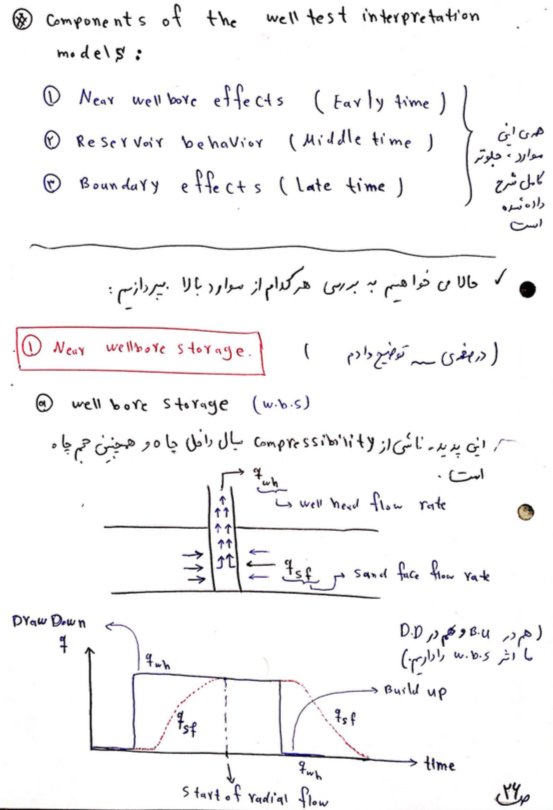 ⊗ Components of the well test interpretation
models:
① Near wellbore effects (Early time)
② Reservoir behavior (Middle time)
③ Boundary effects (Late time)
همه‌ی این
موارد، جلوتر
کامل شرح
داده شده
است
✓ حالا می خواهیم به بررسی هر کدام از موارد بالا بپردازیم:
① Near wellbore storage.
( در صفحه‌ی ـــ توضیح دادم )
ⓐ well bore storage (w.b.s)
این پدیده ناشی از compressibility سیال داخل چاه و همچنین حجم چاه
است.
q wh
↳ well head flow rate
q sf → sand face flow rate
Draw Down
q
q wh
q sf
(هم در B.U و هم در D.D
ما اثر w.b.s را داریم.)
Build up
q sf
q wh
time
start of radial flow
ص ۳۶